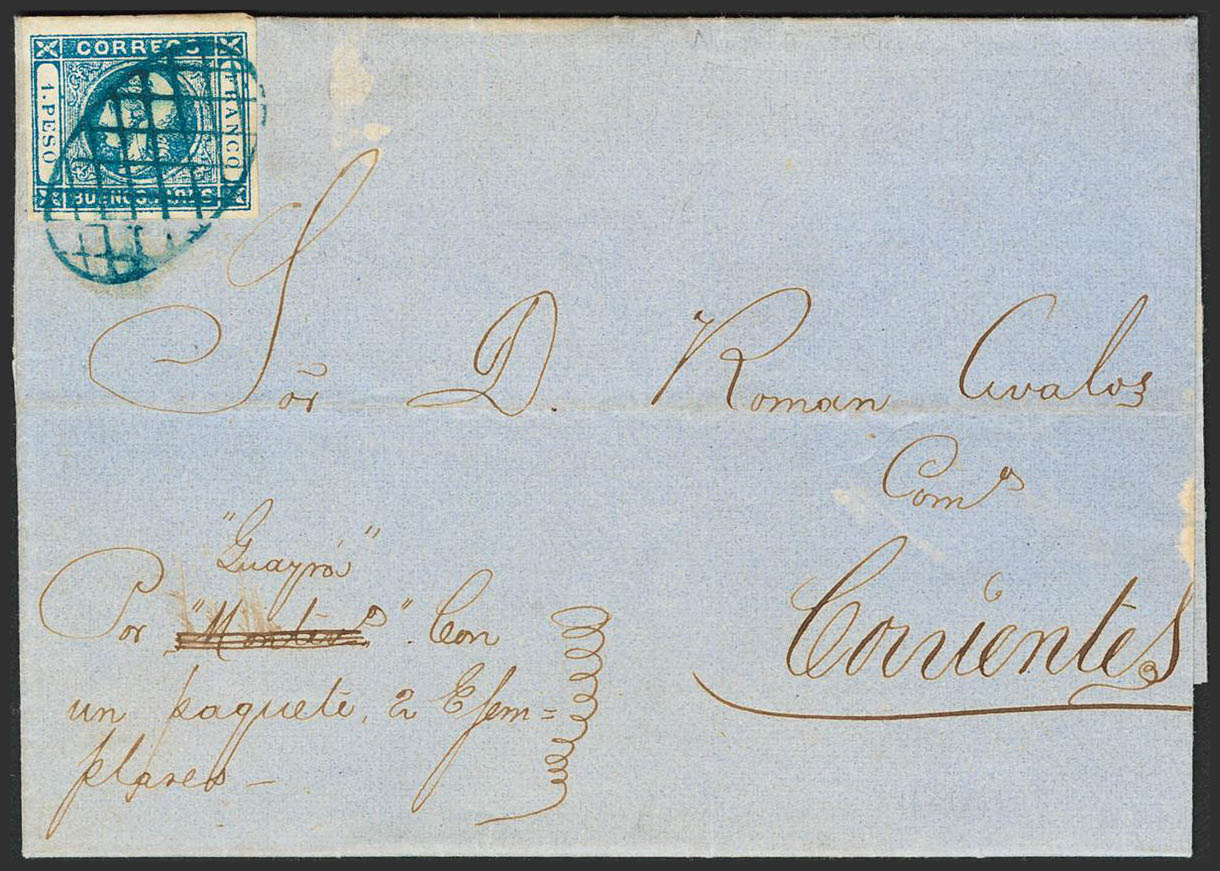 CORREOS
1. PESO
FRANCO
BUENOS AIRES
Sor D. Roman Avalos
Coms
Corrientes
"Guayrá"
Por "Montevo". Con
un paquete, 2 Ejem=
plares—